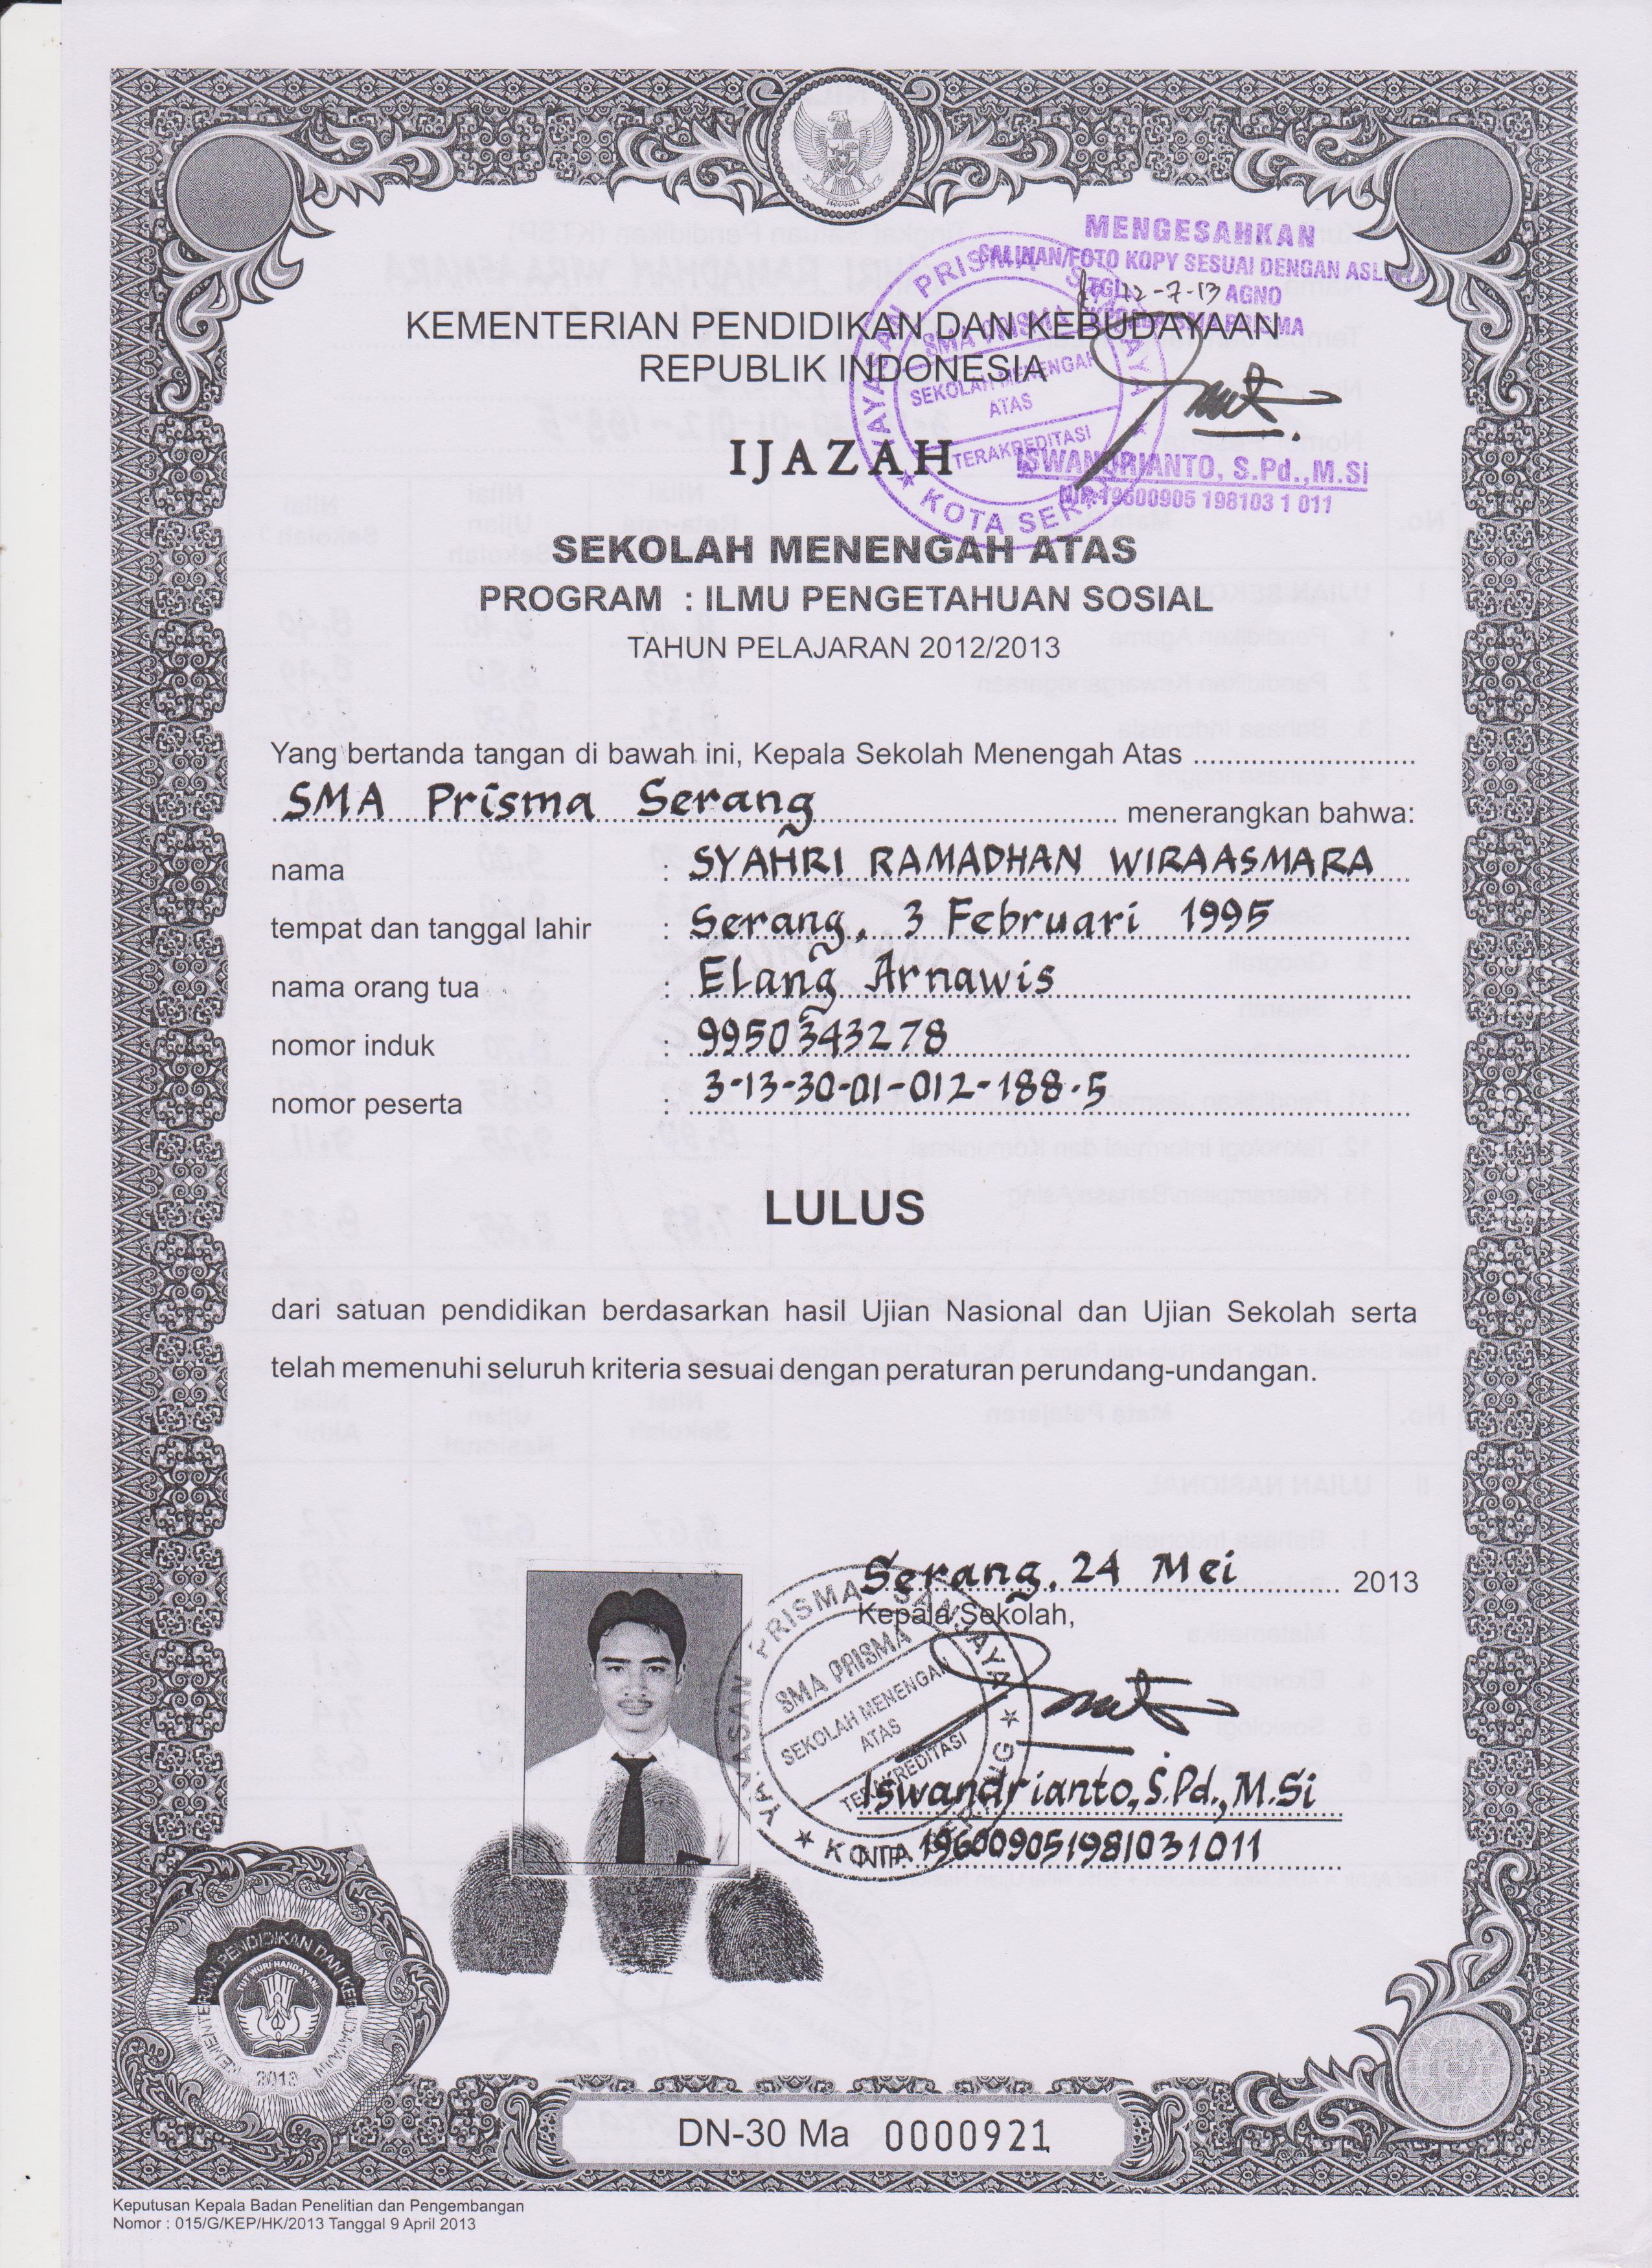 MENGESAHKAN
SALINAN/FOTO KOPY SESUAI DENGAN ASLINYA
TGL 12-7-13 AGNO
KEPALA SMA PRISMA
KEMENTERIAN PENDIDIKAN DAN KEBUDAYAAN
REPUBLIK INDONESIA
YAYASAN PRISMA
SMA PRISMA
SEKOLAH MENENGAH
ATAS
TERAKREDITASI
KOTA SERANG
IJAZAH
ISWANDRIANTO, S.Pd.,M.Si
NIP.19600905 198103 1 011
SEKOLAH MENENGAH ATAS
PROGRAM : ILMU PENGETAHUAN SOSIAL
TAHUN PELAJARAN 2012/2013
Yang bertanda tangan di bawah ini, Kepala Sekolah Menengah Atas
SMA Prisma Serang menerangkan bahwa:
nama : SYAHRI RAMADHAN WIRAASMARA
tempat dan tanggal lahir : Serang, 3 Februari 1995
nama orang tua : Elang Arnawis
nomor induk : 9950343278
nomor peserta : 3-13-30-01-012-188-5
LULUS
dari satuan pendidikan berdasarkan hasil Ujian Nasional dan Ujian Sekolah serta
telah memenuhi seluruh kriteria sesuai dengan peraturan perundang-undangan.
Serang, 24 Mei 2013
Kepala Sekolah,
YAYASAN PRISMA SANJAYA
SMA PRISMA
SEKOLAH MENENGAH
ATAS
TERAKREDITASI
KOTA
Iswandrianto, S.Pd., M.Si
NIP. 196009051981031011
KEMENTERIAN PENDIDIKAN DAN KEBUDAYAAN
TUT WURI HANDAYANI
2013
DN-30 Ma 0000921
Keputusan Kepala Badan Penelitian dan Pengembangan
Nomor : 015/G/KEP/HK/2013 Tanggal 9 April 2013